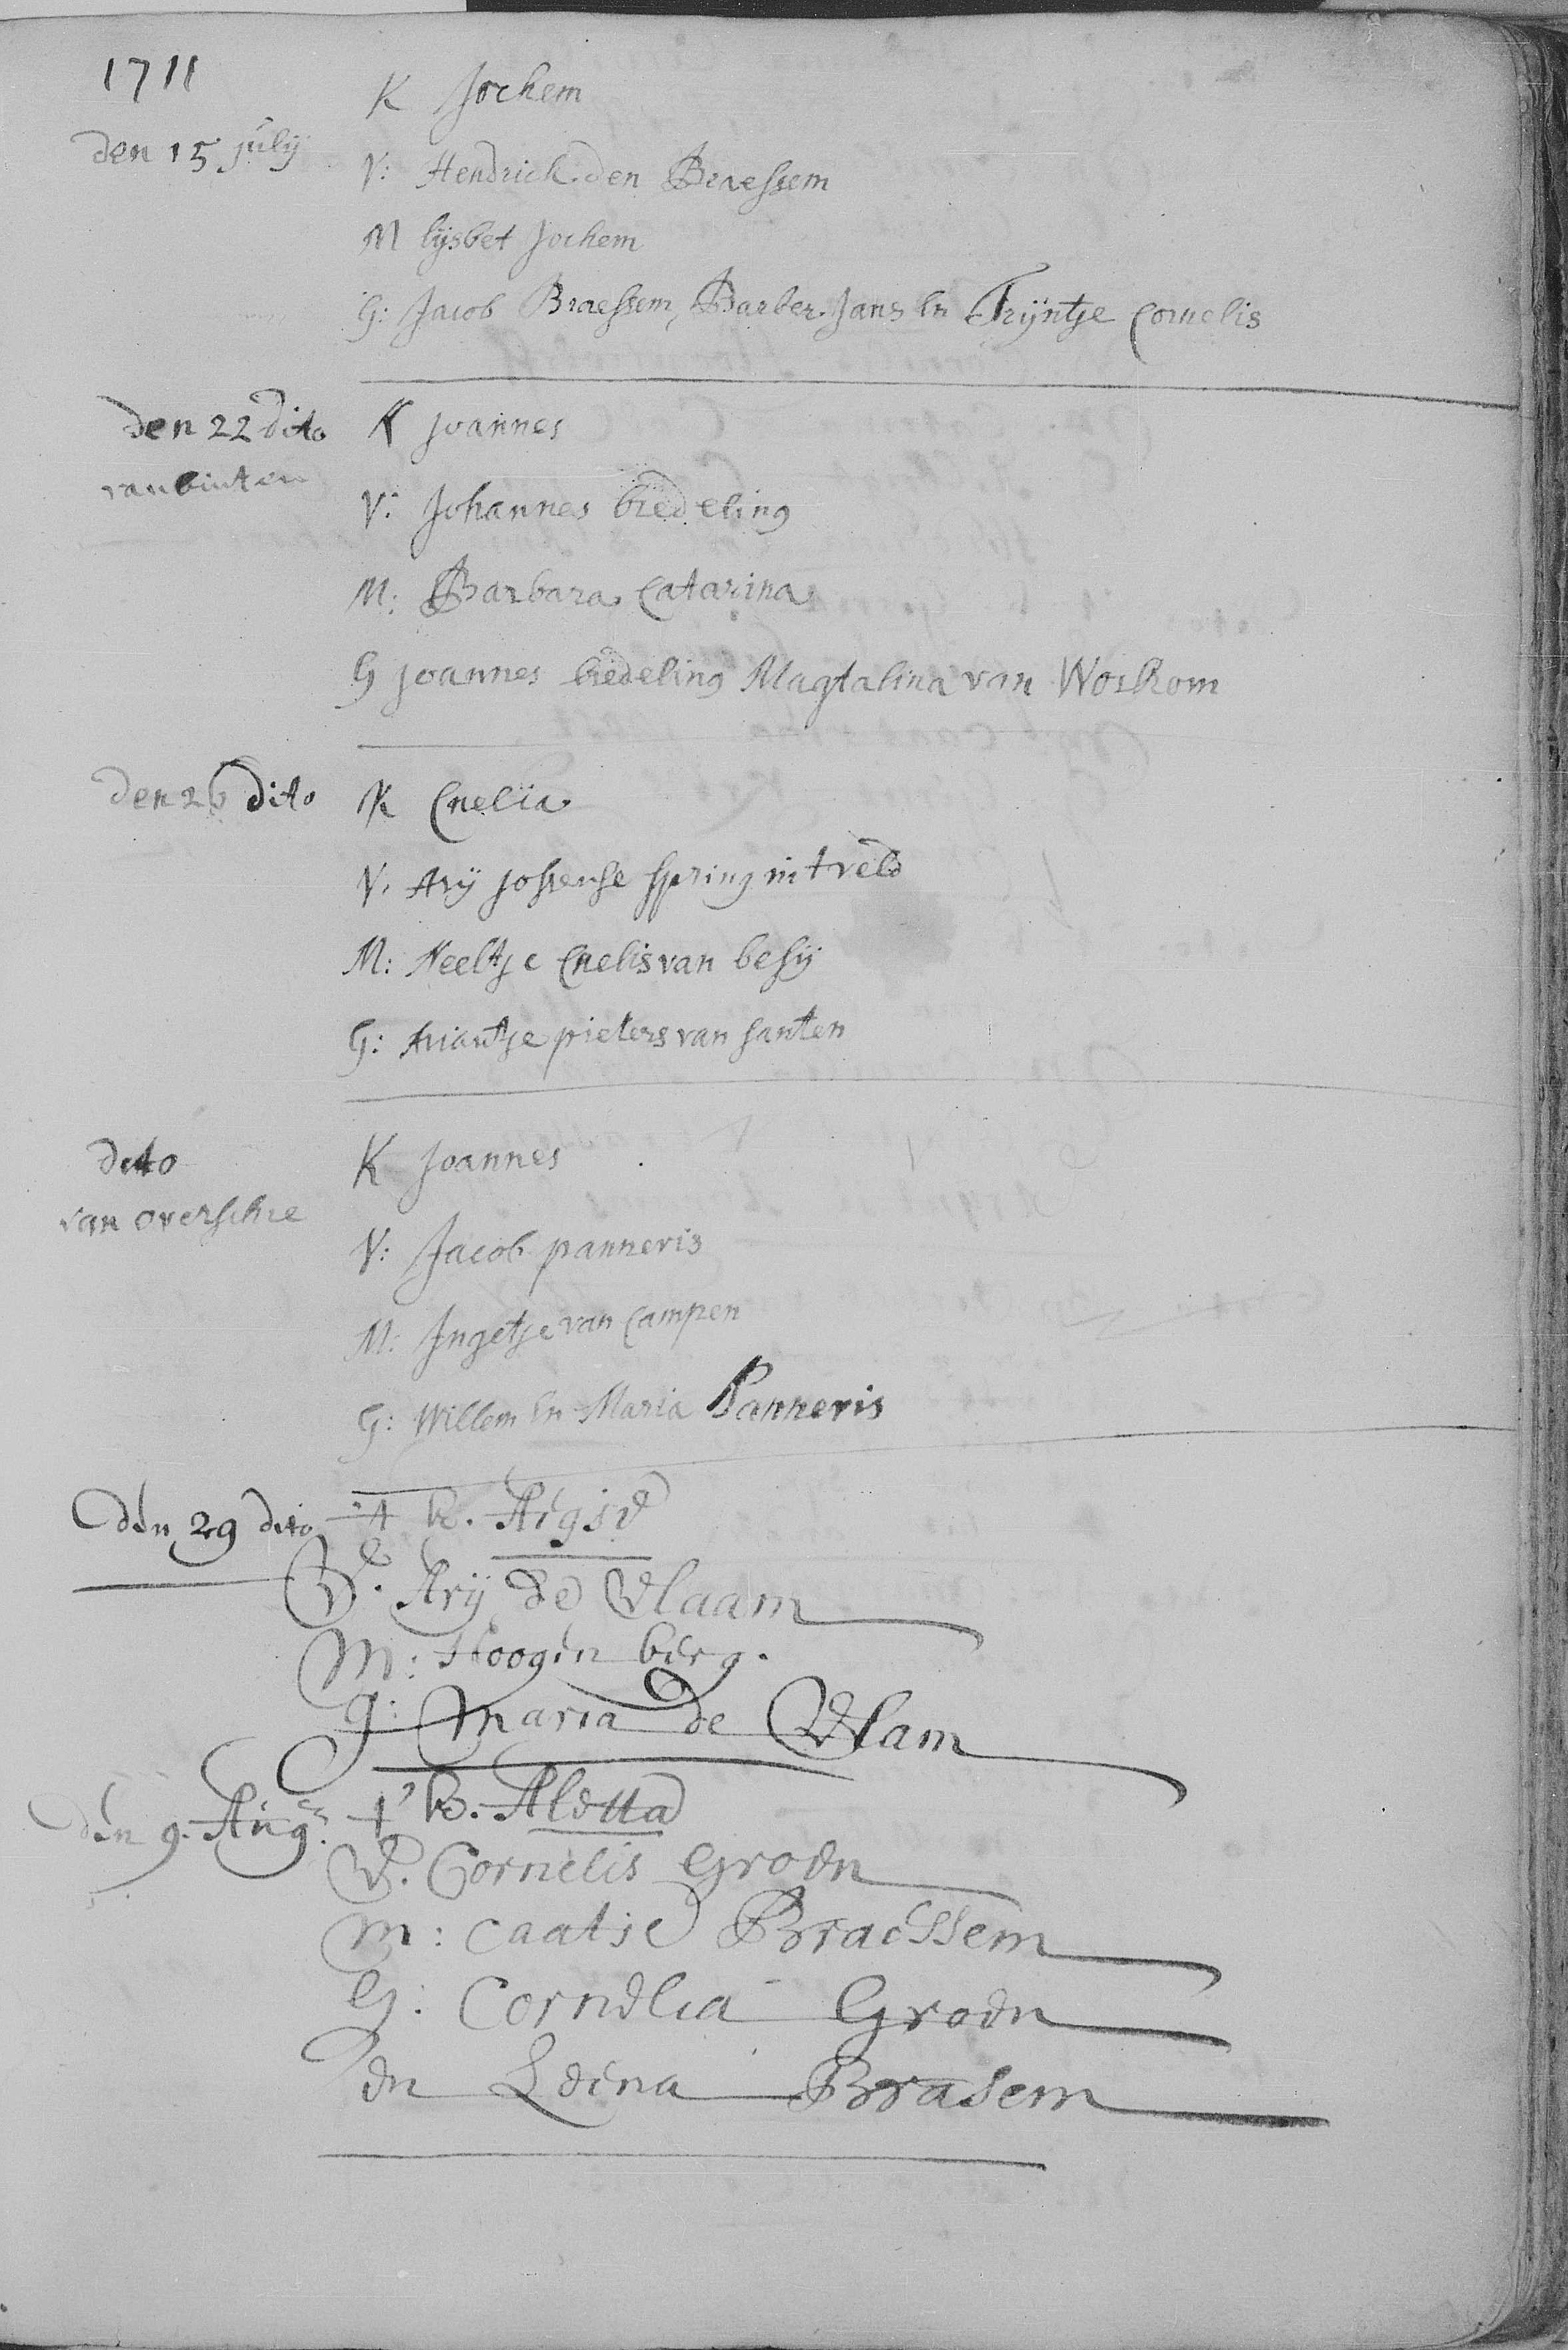 1711
den 15 july
K Jochem
V: Hendrick den Braessem
M lijsbet Jochem
G: Jacob Braessem, Barber Jans En Trijntje Cornelis
den 22 dito
van buiten
K Joannes
V: Johannes bredeling
M: Barbara Catarina
G Joannes bredeling Magtalina van Workom
den 26 dito
K Cnelia
V. Arij Jossense spring int veld
M: Neeltje Cnelis van besij
G: Ariantje pieters van santen
dito
van overschie
K Joannes
V: Jacob panneris
M: Ingetje van Campen
G: Willem En Maria Panneris
den 29 dito
't k.
V. Arij de Vlaam
M: Hoogen berg.
g: Maria de Vlam
den 9. Aug.
't k. Aletta
V. Cornelis Groen
m: Caatie Braessem
G: Cornelia Groen
en Brasem